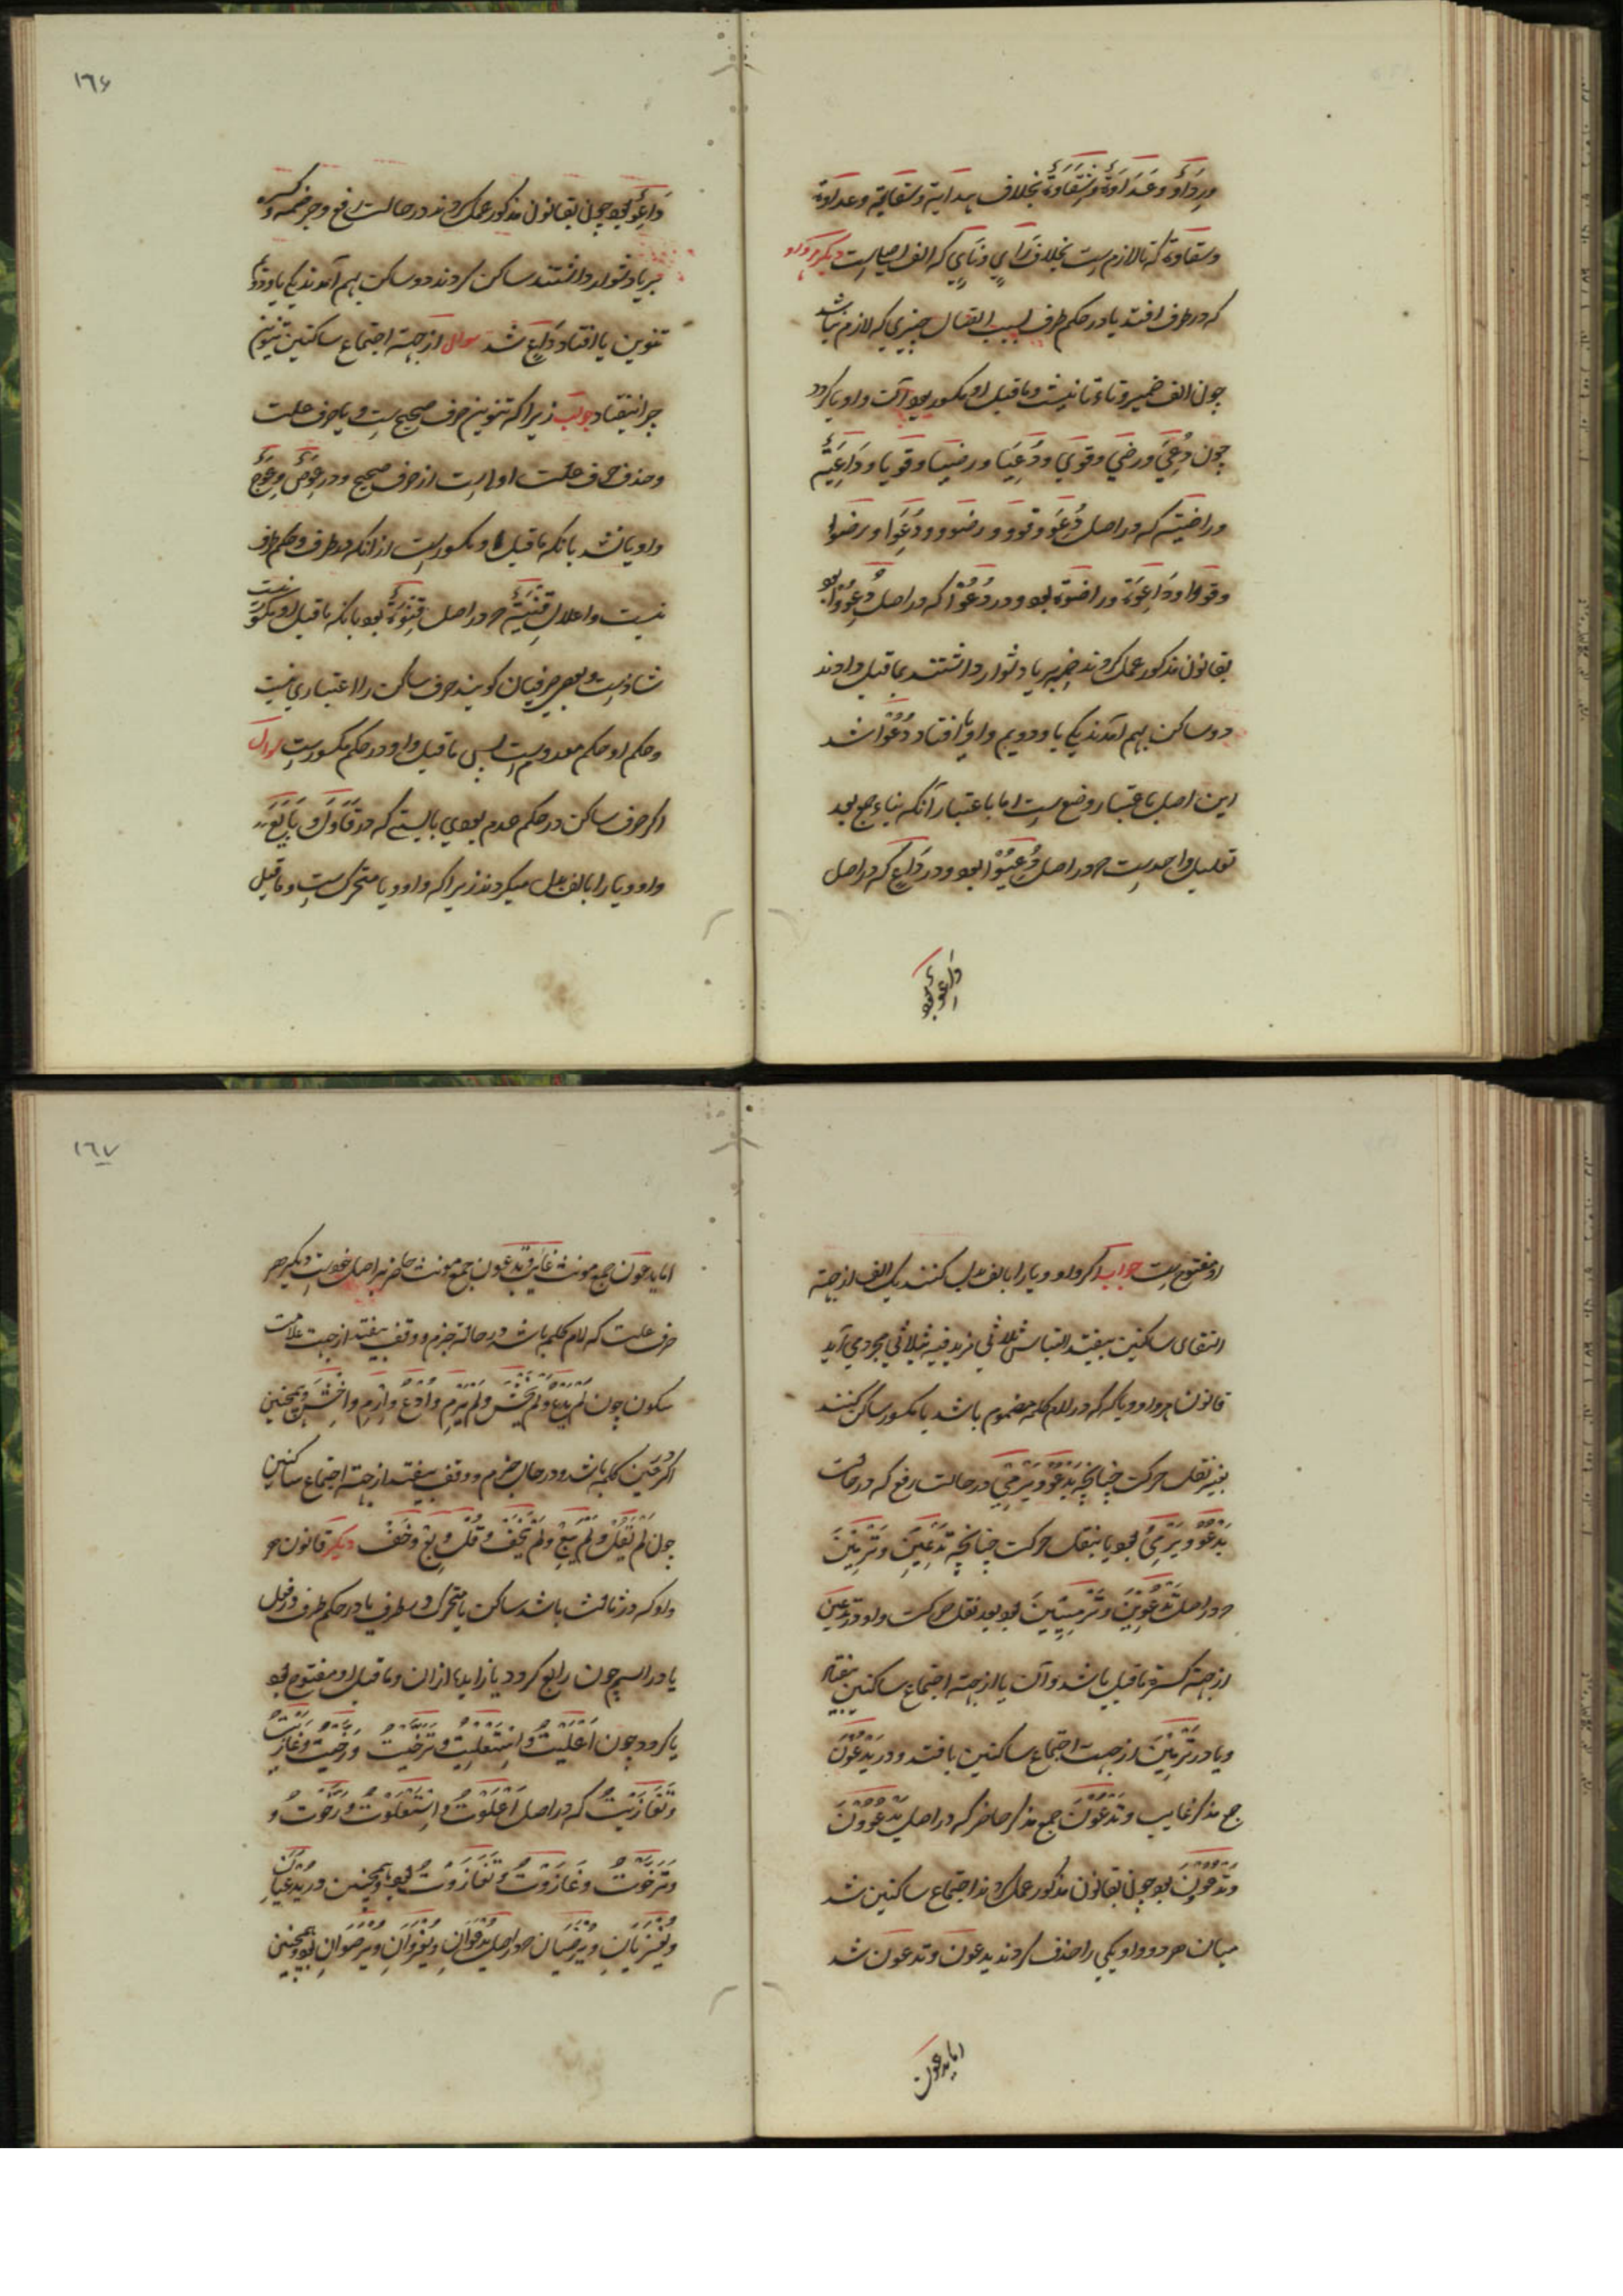 ورداؤ وعداوة وسقاوة بخلاف هداية وسقاية وعداوة
وسقاوة كه تا لازمست بخلاف راي وناي كه الف اصليست ديكر هر واو
كه در طرف افتد يا در حكم طرف بسبب اتصال چيزي كه لازم نباشد
چون الف ضمير وتاء تانيث وماقبل او مكسور بود آن واو يا كردد
چون دُعِيَ ورضي وقوي ودُعِيَا ورضيا وقويا وداعِيَة
وراضية كه در اصل دُعِوَ وقوو ورضو ودُعِوَا ورضوا
وقووا وداعِوَة وراضوة بود ودر دُعُوْا كه در اصل دُعِوُوْا بود
بقانون مذكور عمل كردند ضمه بر يا دشوار داشتند بماقبل دادند
دو ساكن بهم آمدند يكي يا ودويم واو يا افتاد دُعُوْا شد
اين اصل باعتبار وضعست اما باعتبار آنكه بناء جمع بعد
تعليل واحدست در اصل دُعِيُوْا بود ودر دَاعٍ كه در اصل
داعو بود
١٦٦
دَاعِوٌ بود چون بقانون مذكور عمل كردند در حالت رفع وجر ضمه وكسره
بر يا دشوار داشتند ساكن كردند دو ساكن بهم آمدند يكي يا ودويم
تنوين يا افتاد دَاعٍ شد سوال از جهت اجتماع ساكنين تنوين
چرا نيفتاد جواب زيرا كه تنوين حرف صحيح است ويا حرف علت
وحذف حرف علت اولاست از حرف صحيح ودر عِوَض وعِوَج
واو يا نشد با آنكه ماقبل او مكسورست از آنكه در طرف وحكم طرف
نيست واعلال قِنْيَة كه در اصل قِنْوَة بود با آنكه ماقبل او مكسور نيست
شاذست وبعضي صرفيان كويند حرف ساكن را اعتباري نيست
وحكم او حكم معدومست پس ماقبل واو در حكم مكسورست سوال
اكر حرف ساكن در حكم عدم بودي بايستي كه در قَاوَلَ وبَايَعَ
واو ويا را با الف بدل ميكردند زيرا كه واو ويا متحركست وماقبل
او مفتوحست جواب اكر واو ويا را بالف بدل كنند يك الف از جهة
التقاي ساكنين بيفتد التباس ثلاثي مزيد فيه بثلاثي مجرد مي آيد
قانون هر واو ويا كه در لام كلمه مضموم باشد يا مكسور ساكن كنند
بغير نقل حركت چنانچه يَدْعُوْ ويَرْمِيْ در حالت رفع كه در حالت
يَدْعُوُ ويَرْمِيُ بود يا بنقل حركت چنانچه تَدْعِيْنَ وتَرْمِيْنَ
در اصل تَدْعُوِيْنَ وتَرْمِيِيْنَ بود بعد نقل حركت واو در تدعين
از جهة كسرة ماقبل يا شد وآن يا از جهة اجتماع ساكنين بيفتاد
ويا در تَرْمِيْنَ از جهت اجتماع ساكنين يا افتد ودر يَدْعُوْنَ
جمع مذكر غايب وتَدْعُوْنَ جمع مذكر حاضر كه در اصل يَدْعُوُوْنَ
وتَدْعُوُوْنَ بود چون بقانون مذكور عمل كردند اجتماع ساكنين شد
ميان هر دو واو يكي را حذف كردند يدعون وتدعون شد
اما يدعون
١٦٧
اما يدعون جمع مونث غايب وتدعون جمع مونث حاضر بر اصل خودست ديكر هر
حرف علت كه لام كلمه باشد در حالة جزم ووقف بيفتد از جهت علامت
سكون چون لَمْ يَدْعُ ولَمْ يَخْشَ ولَمْ يَرْمِ واُدْعُ واِرْمِ واِخْشَ وهمچنين
اكر در عين كلمه باشد ودر حال جزم ووقف بيفتد از جهة اجتماع ساكنين
چون لَمْ يَقُلْ ولَمْ يَبِعْ ولَمْ يَخَفْ وقُلْ وبِعْ وخَفْ ديكر قانون هر
واو كه در ثالث باشد ساكن يا متحرك در طرف يا در حكم طرف در فعل
يا در اسم چون رابع كردد يا زايد از ان وماقبل او مفتوح بود
يا كردد چون اَعْلَيْتُ واِسْتَعْلَيْتُ وتَرَجَّيْتُ ورَجَّيْتُ وغَازَيْتُ
وتَغَازَيْتُ كه در اصل اَعْلَوْتُ واِسْتَعْلَوْتُ ورَجَّوْتُ و
وتَرَجَّوْتُ وغَازَوْتُ وتَغَازَوْتُ بود وهمچنين در يُدْعَيَانِ
ويُغْزَيَانِ ويَرْضَيَانِ در اصل يُدْعَوَانِ ويُغْزَوَانِ ويَرْضَوَانِ بود وهمچنين